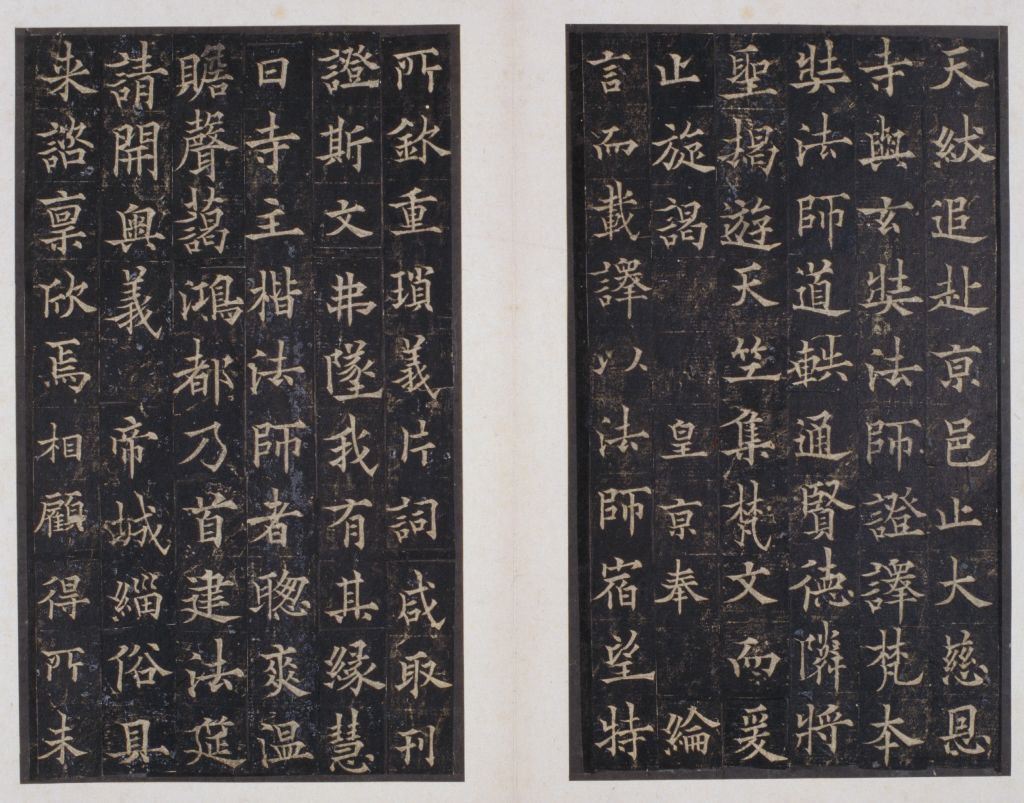 天紱追赴亰邑止大慈恩
寺與玄奘法師證譯梵本
奘法師道軼通賢德隣將
聖揭遊天竺集梵文而爰
止旋謁 皇亰奉 綸
言而載譯以法師宿望特
所欽重瑣義片詞咸取刊
證斯文弗墜我有其緣慧
日寺主楷法師者聦爽温
贍聲藹鴻都乃首建法筵
請開奧義帝城緇俗具
来諮禀欣焉相顧得所未